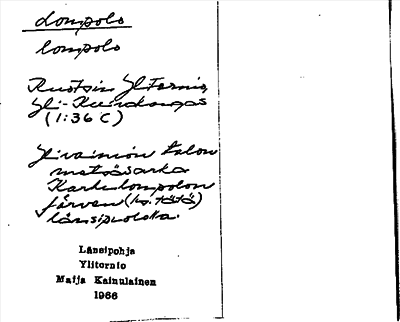 Lompolo
lompolo
Ruotsin Ylitornio,
Yli-Kuivakangas
(1:36 C)
Ylivainion talon
metsäsarka
Karhulompolon
järven (ks. tätä)
länsipuolella.
Länsipohja
Ylitornio
Maija Kainulainen
1966